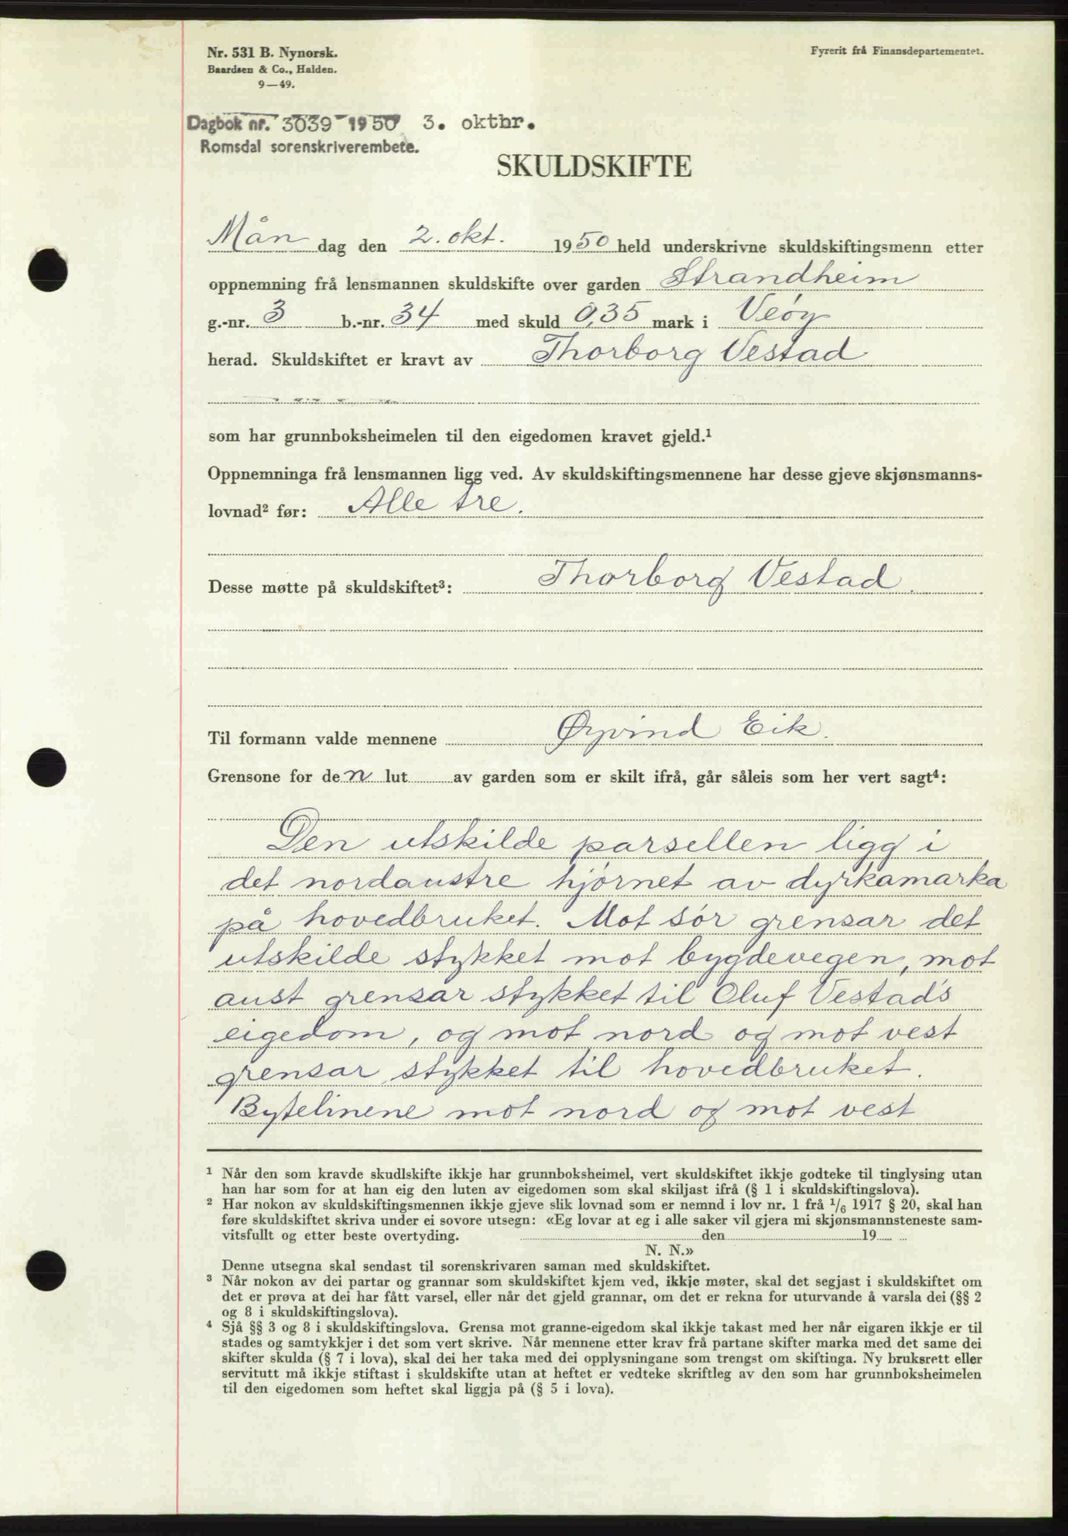 Nr. 531 B. Nynorsk.
Baardsen & Co., Halden.
9—49.
Fyrerit frå Finansdepartementet.
Dagbok nr. 3039 - 1950 3. oktbr.
Romsdal sorenskriverembete.
SKULDSKIFTE
Mån dag den 2. okt. 1950 held underskrivne skuldskiftingsmenn etter
oppnemning frå lensmannen skuldskifte over garden Strandheim
g.-nr. 3 b.-nr. 34 med skuld 0,35 mark i Veøy
herad. Skuldskiftet er kravt av Thorborg Vestad
som har grunnboksheimelen til den eigedomen kravet gjeld.¹
Oppnemninga frå lensmannen ligg ved. Av skuldskiftingsmennene har desse gjeve skjønsmanns-
lovnad² før: Alle tre.
Desse møtte på skuldskiftet³: Thorborg Vestad.
Til formann valde mennene Øyvind Eik.
Grensone for den lut av garden som er skilt ifrå, går såleis som her vert sagt⁴:
Den utskilde parsellen ligg i
det nordaustre hjørnet av dyrkamarka
på hovedbruket. Mot sør grensar det
utskilde stykket mot bygdevegen, mot
aust grensar stykket til Oluf Vestad's
eigedom, og mot nord og mot vest
grensar stykket til hovedbruket.
Bytelinene mot nord og mot vest
¹ Når den som kravde skudlskifte ikkje har grunnboksheimel, vert skuldskiftet ikkje godteke til tinglysing utan
han har som for at han eig den luten av eigedomen som skal skiljast ifrå (§ 1 i skuldskiftingslova).
² Har nokon av skuldskiftingsmennen ikkje gjeve slik lovnad som er nemnd i lov nr. 1 frå 1/6 1917 § 20, skal han
føre skuldskiftet skriva under ei sovore utsegn: «Eg lovar at eg i alle saker vil gjera mi skjønsmannsteneste sam-
vitsfullt og etter beste overtyding. den 19
N. N.»
Denne utsegna skal sendast til sorenskrivaren saman med skuldskiftet.
³ Når nokon av dei partar og grannar som skuldskiftet kjem ved, ikkje møter, skal det segjast i skuldskiftet om
det er prøva at dei har fått varsel, eller når det gjeld grannar, om det er rekna for uturvande å varsla dei (§§ 2
og 8 i skuldskiftingslova).
⁴ Sjå §§ 3 og 8 i skuldskiftingslova. Grensa mot granne-eigedom skal ikkje takast med her når eigaren ikkje er til
stades og samtykkjer i det som vert skrive. Når mennene etter krav frå partane skifter marka med det same dei
skifter skulda (§ 7 i lova), skal dei her taka med dei opplysningane som trengst om skiftinga. Ny bruksrett eller
servitutt må ikkje stiftast i skuldskifte utan at heftet er vedteke skriftleg av den som har grunnboksheimelen
til den eigedomen som heftet skal liggja på (§ 5 i lova).